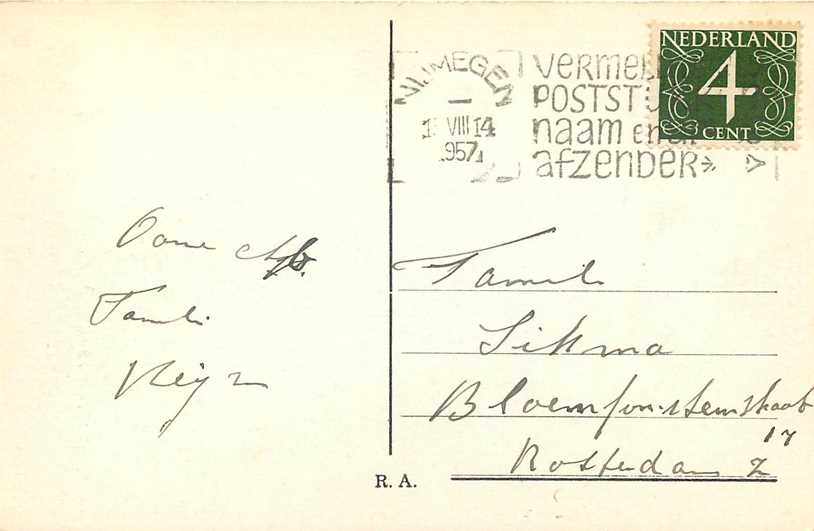 NIJMEGEN
VIII 14
1957
VERMELD
POSTST
naam en
afzender
NEDERLAND
4
CENT
Famili
Heijn
Famili
Sikma
Bloemfonteinstraat
17
Rotterdam Z
R. A.